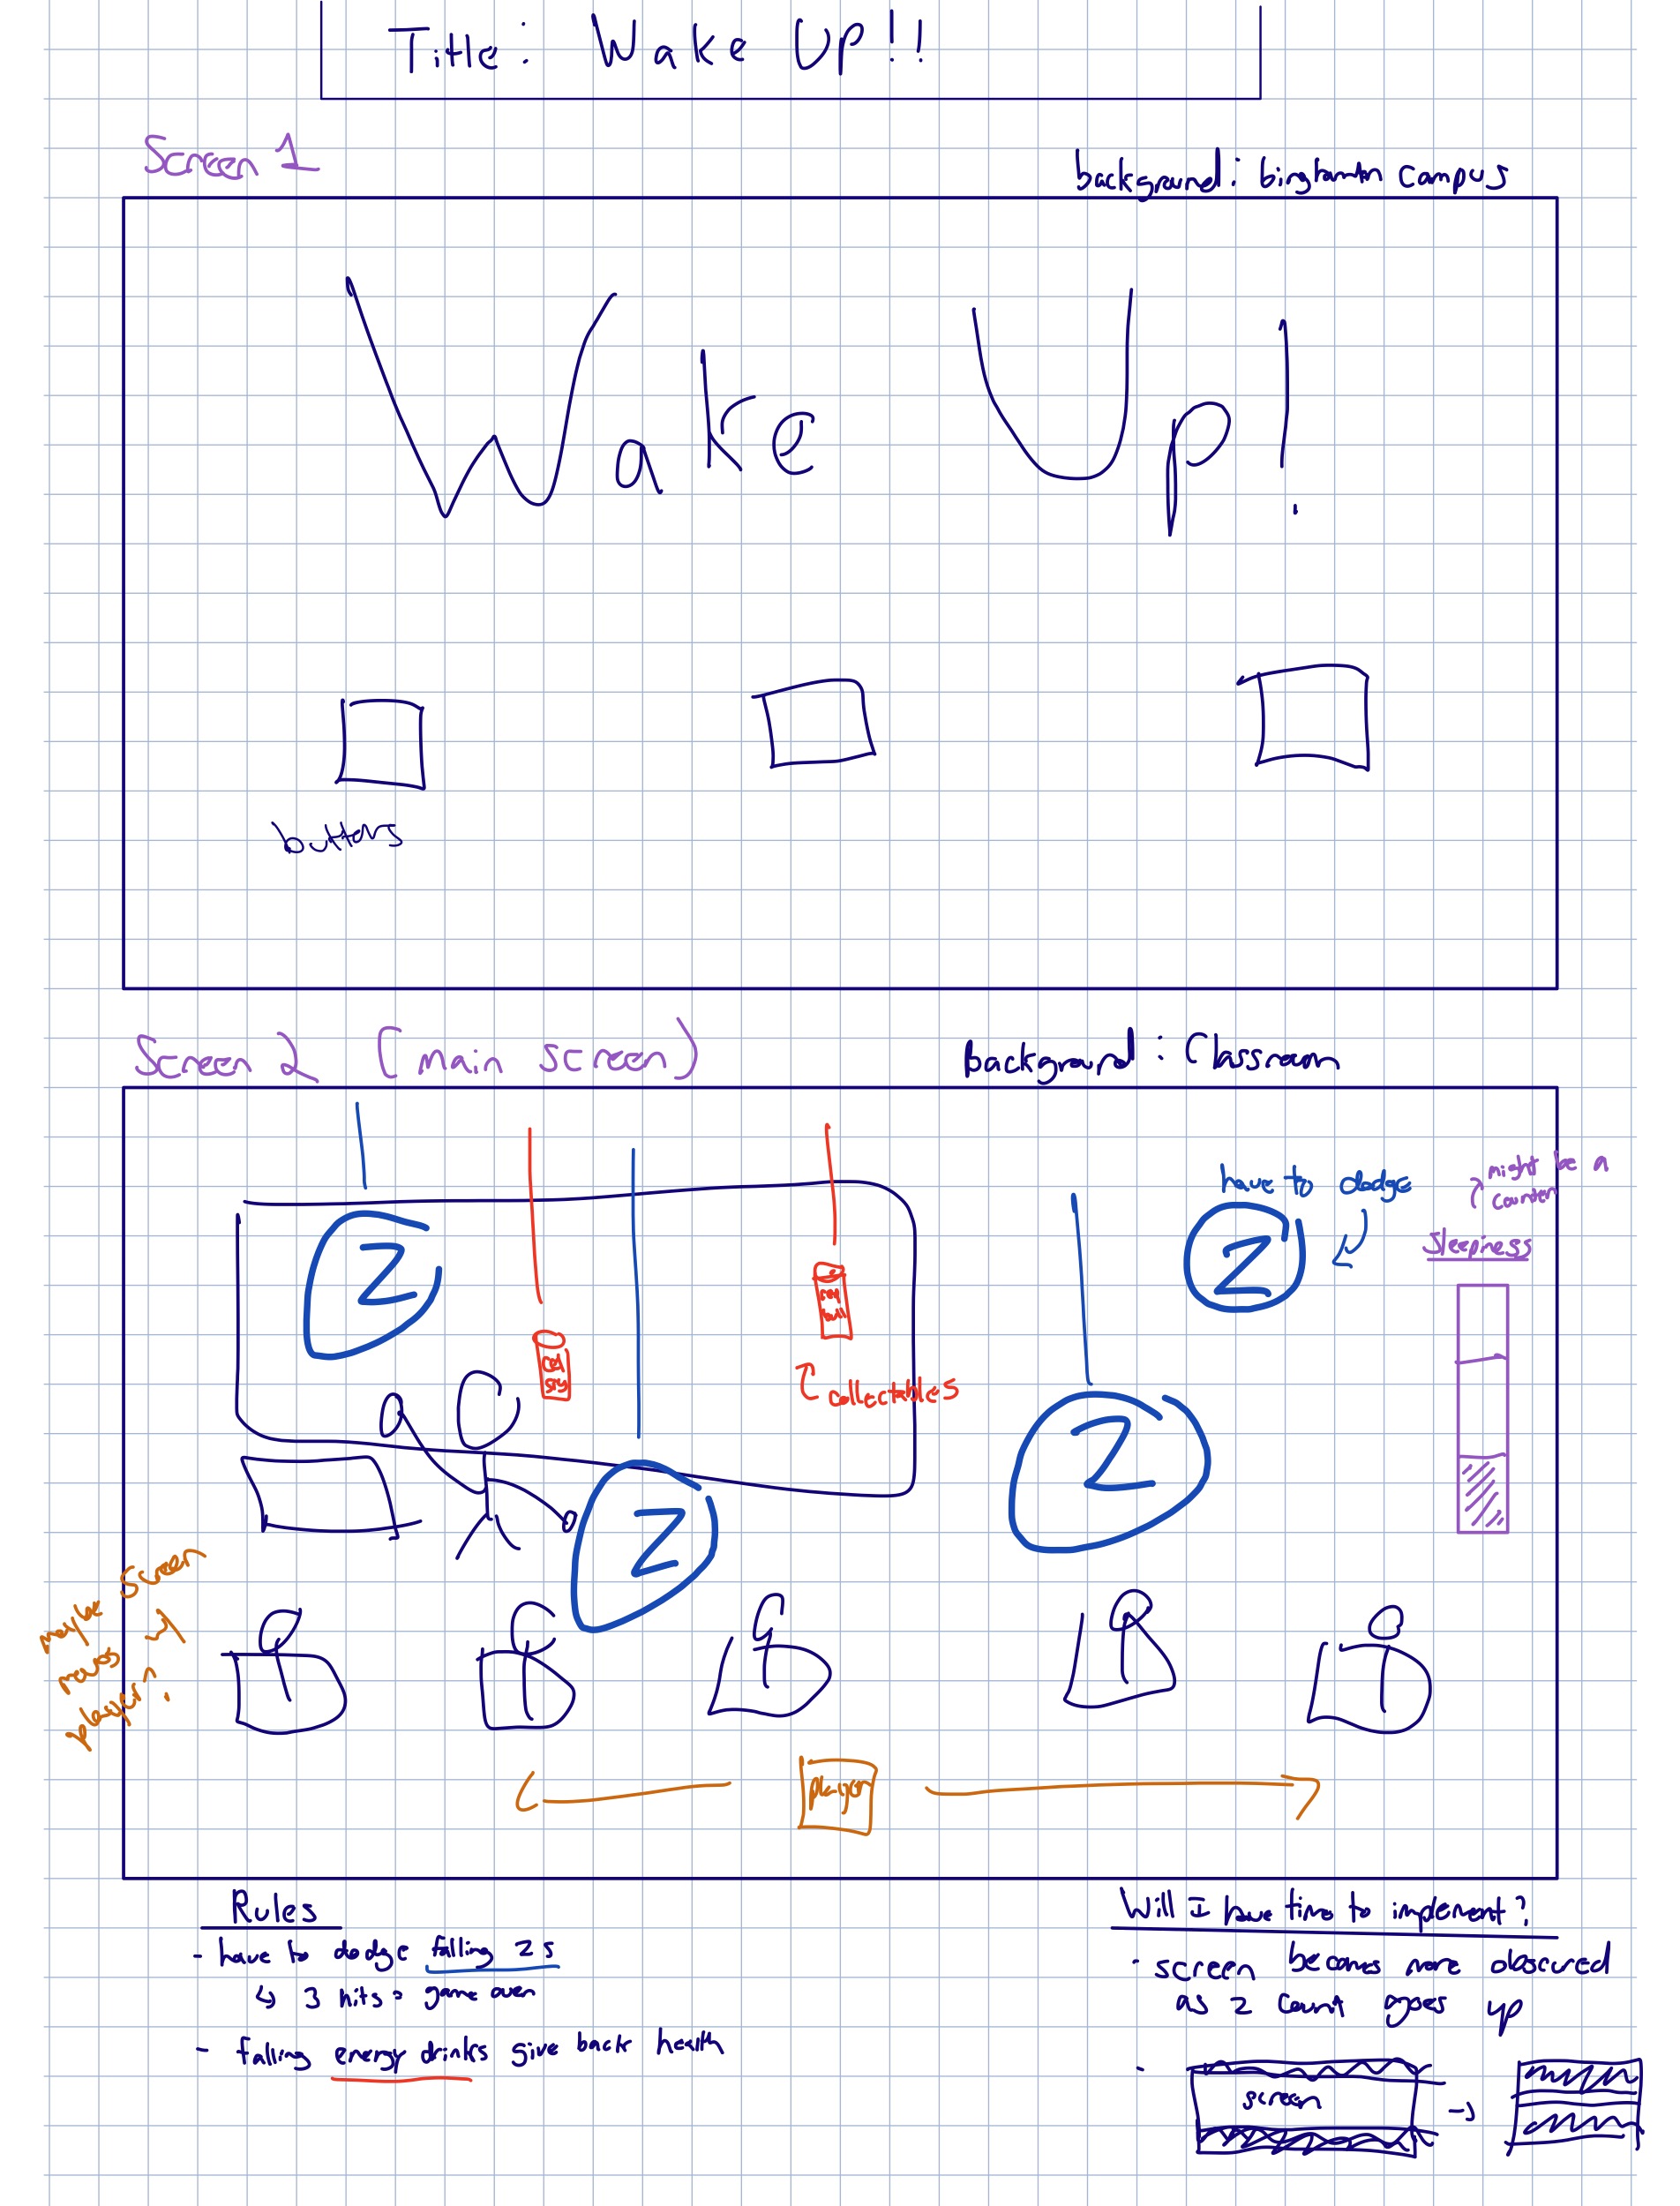 Title: Wake Up!!
Screen 1
background: binghamton campus
Wake Up!
buttons
Screen 2 (main screen)
background: Classroom
might be a
counter
have to dodge
sleepiness
Z
Z
Z
Z
red
bull
collectables
maybe screen
moves w/
player?
player
Rules
- have to dodge falling Zs
↳ 3 hits = game over
- falling energy drinks give back health
Will I have time to implement?
- screen becomes more obscured
as Z count goes up
- screen →